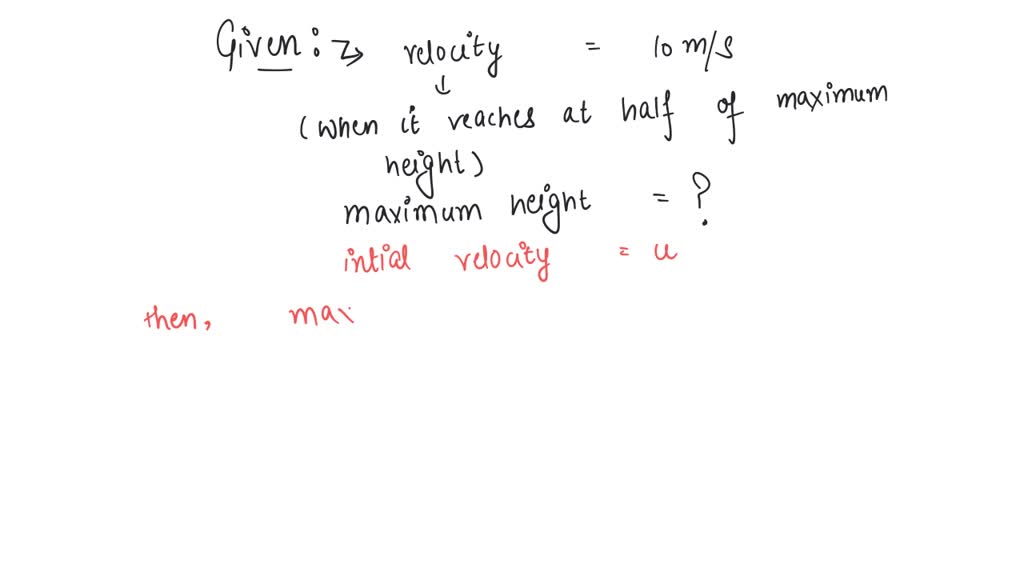 Given: → velocity = 10 m/s
↓
(when it reaches at half of maximum
height)
maximum height = ?
intial velocity = u
then, max